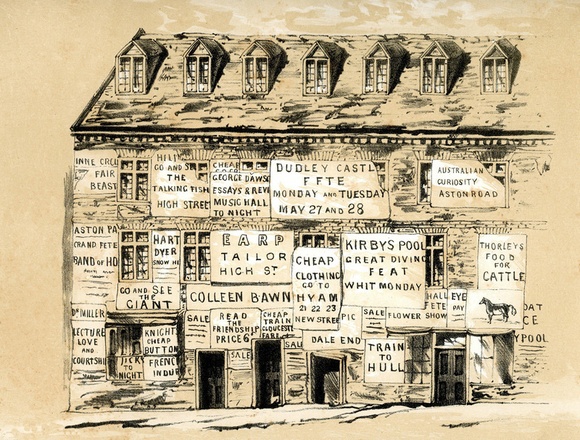 FAIR
BEAST
GO AND SEE
THE
TALKING FISH
HIGH STREET
CHEAP
GEORGE DAWSO
ESSAYS & REVI
MUSIC HALL
TO NIGHT
DUDLEY CASTL
FETE
MONDAY AND TUESDAY
MAY 27 AND 28
AUSTRALIAN
CURIOSITY
ASTON ROAD
ASTON PA
GRAND FETE
BAND OF HO
HART
DYER
SNOW H
GO AND SEE
THE
GIANT
EARP
TAILOR
HIGH ST
COLLEEN BAWN
CHEAP
CLOTHING
GO TO
HYAM
21 22 23
NEW STREET
KIRBYS POOL
GREAT DIVING
FEAT
WHIT MONDAY
THORLEYS
FOOD
FOR
CATTLE
DR MILLER
LECTURE
LOVE
AND
COURTSHI
TO
NIGHT
KNIGHT
CHEAP
BUTTON
FRENC
INDU
SALE
READ
THE
FRIENDSHIP
PRICE 6
SALE
CHEAP
TRAIN
GLOUCEST
FARE
SAL
PIC
DALE END
SALE
HALL
FETE
FLOWER SHOW
EYE
DAY
TRAIN
TO
HULL
OAT
CE
YPOOL